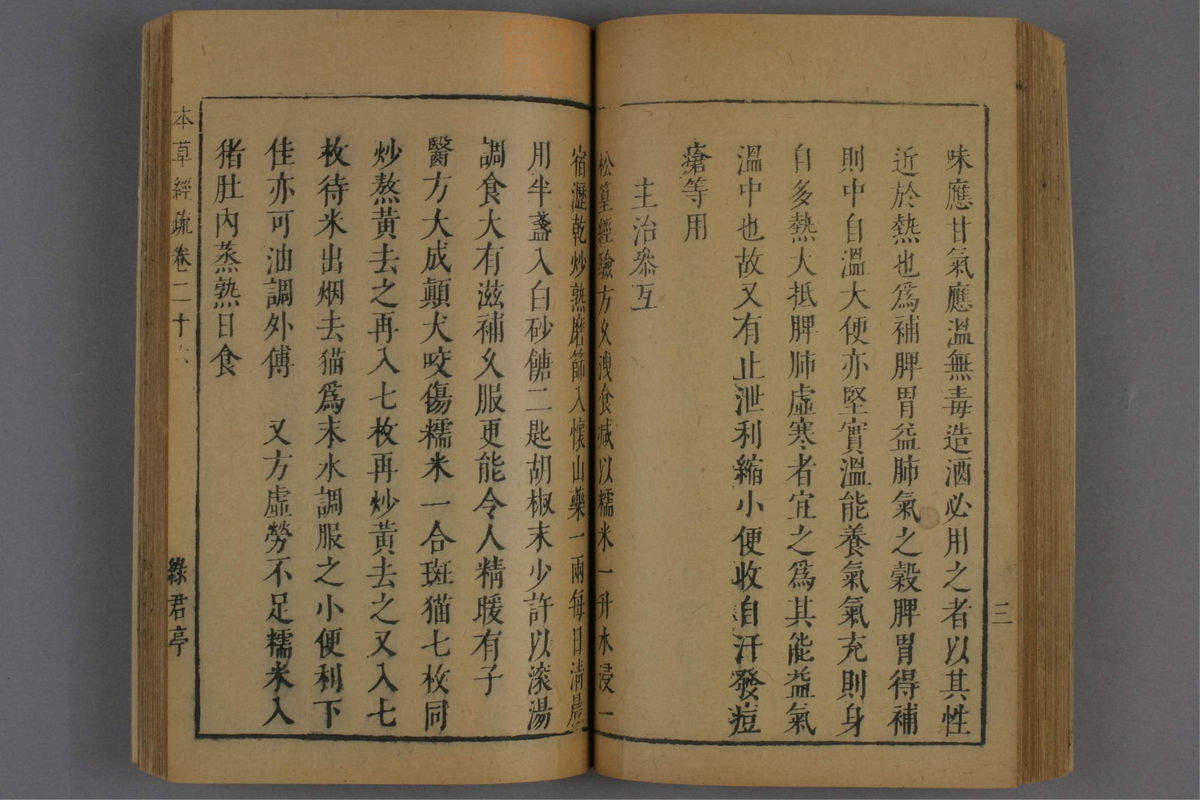 三
味應甘氣應溫無毒造酒必用之者以其性
近於熱也爲補脾胃益肺氣之穀脾胃得補
則中自溫大便亦堅實溫能養氣氣充則身
自多熱大抵脾肺虛寒者宜之爲其能益氣
溫中也故又有止泄利縮小便收自汗發痘
瘡等用
主治叅互
松篁經驗方久洩食減以糯米一升水浸一
宿瀝乾炒熟磨篩入懷山藥一兩每日清晨
用半盞入白砂餹二匙胡椒末少許以滚湯
調食大有滋補久服更能令人精暖有子
醫方大成顛犬咬傷糯米一合斑猫七枚同
炒熬黃去之再入七枚再炒黃去之又入七
枚待米出烟去猫爲末水調服之小便利下
佳亦可油調外傅　又方虛勞不足糯米入
猪肚內蒸熟日食
本草經疏卷二十
綠君亭